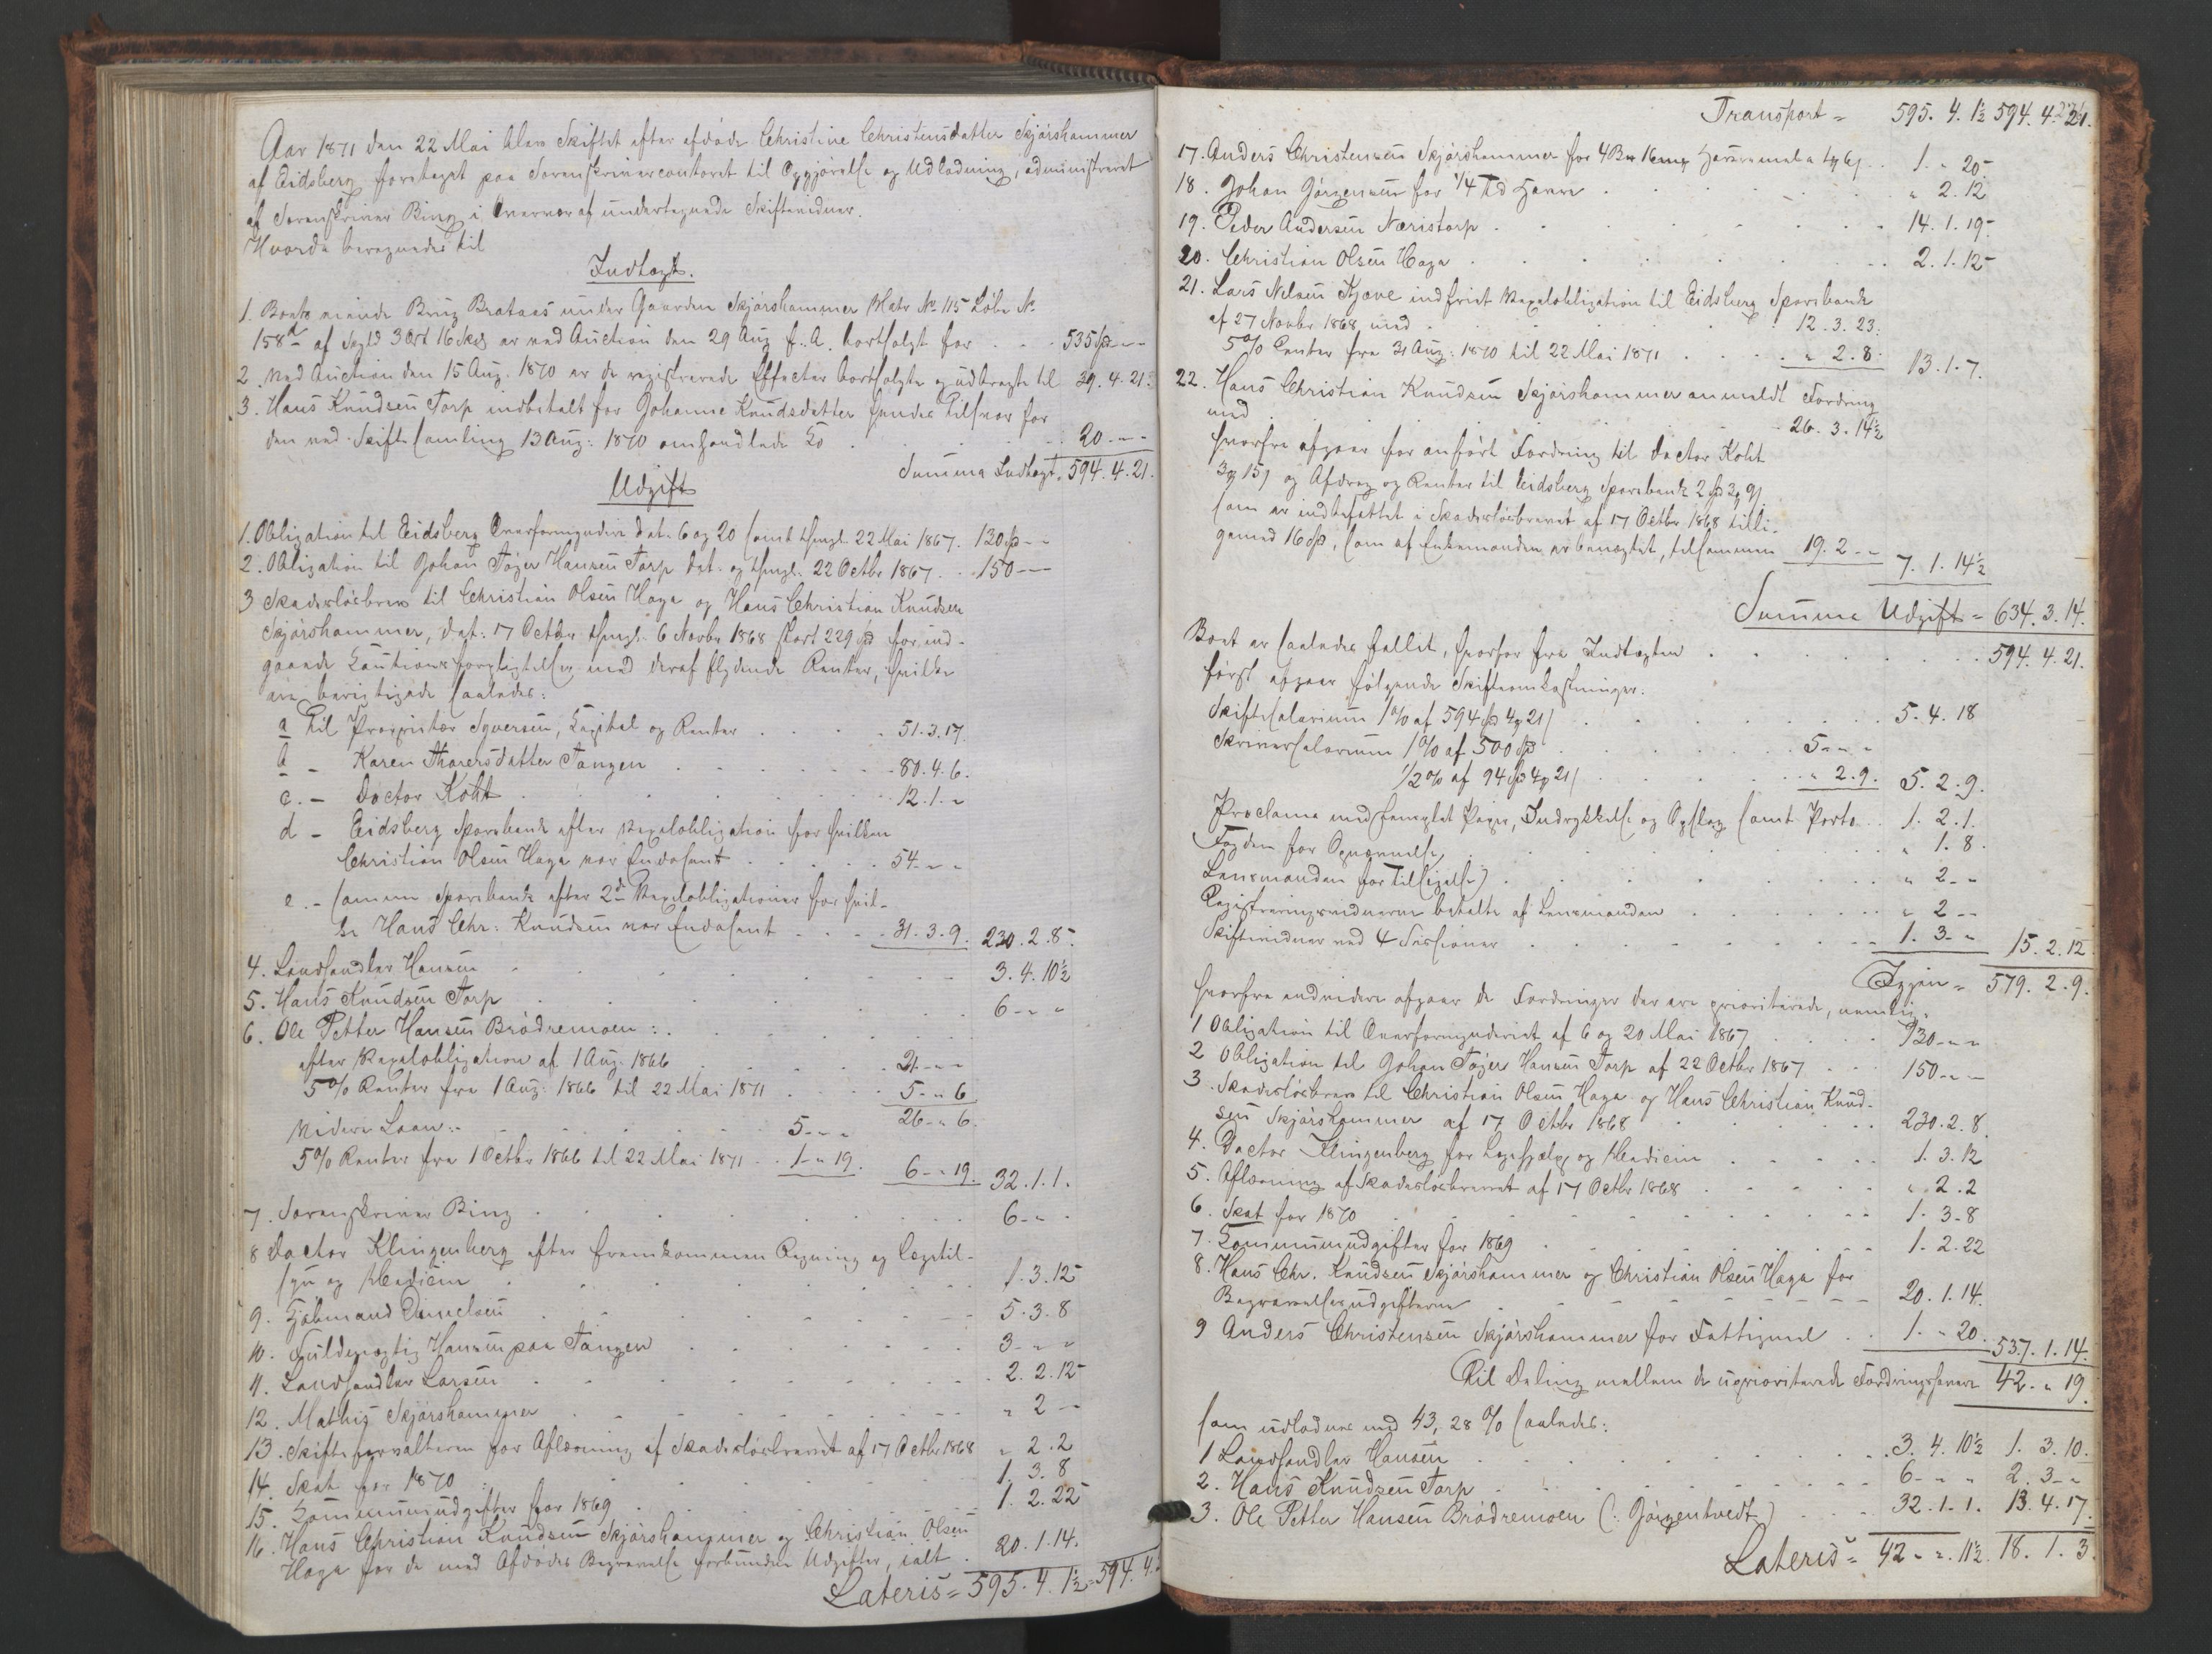 Aar 1871 den 22 Mai blev Skiftet efter afdøde Christine Christensdatter Skjørshammer
af Eidsberg foretaget paa Sorenskrivercontoret til Opgjørelse og Udlodning, administreret
af Sorenskriver Bing i Overvær af undertegnede Skiftevidner.
Hvorda beregnedes til
Indtægt.
1. Boets eiende Brug Brataas under Gaarden Skjørshammer Matr No 115 Løbe No
158d af Skyld 3 Ort 16 Skil er ved Auction den 29 Aug f. A. bortsolgt for . . . 535 Spd - -
2. Ved Auction den 15 Aug. 1870 er de registrerede Effecter bortsolgte og udbragte til 39. 4. 21.
3. Hans Knudsen Torp indbetalt for Johanne Knudsdatter hendes Tilsvar for
den ved Skiftesamling 13 Aug: 1870 omhandlede Ko . . . 20 - -
Summa Indtægt. 594. 4. 21.
Udgift
1. Obligation til Eidsberg Overformynderi dat. 6 og 20 samt thingl. 22 Mai 1867. 120 Spd - -
2. Obligation til Johan Tøger Hansen Torp dat. og thingl. 22 Octbr 1867 . . 150 - -
3 Skadesløsbrev til Christian Olsen Haga og Hans Christian Knudsen
Skjørshammer, dat: 17 Octbr thingl. 6 Novbr 1868 stort 229 Spd for ind-
gaaede Cautionsforpligtelser med deraf flydende Renter, hvilke
ere berigtigede saaledes:
a Til Proprietær Syversen, Capital og Renter . . . 51. 3. 17.
b - Karen Thorersdatter Tangen . . . 80. 4. 6.
c. - Doctor Koht . . . 12. 1. -
d - Eidsberg Sparebank efter Vexelobligation for hvilken
Christian Olsen Haga var Endosent . . . 54 - -
e. - samme Sparebank efter 2de Vexelobligationer for hvil-
ke Hans Chr: Knudsen var Endosent . . . 31. 3. 9. 230. 2. 8.
4. Landhandler Hansen . . . 3. 4. 10½
5. Hans Knudsen Torp . . . 6 - -
6. Ole Petter Hansen Brödremoen: .
efter Vexelobligation af 1 Aug. 1866 . . . 21 - -
5% Renter fra 1 Aug: 1866 til 22 Mai 1871 . . . 5 - " 6
26 - " 6.
Videre Laan: - . . . 5 - -
5% Renter fra 1 Octbr 1866 til 22 Mai 1871 . . 1 - " 19. 6 - " 19. 32. 1. 1.
7. Sorenskriver Bing . . . 6 - -
8 Doctor Klingenberg efter fremkommen Regning og Lægetil-
syn og Medicin . . . 1. 3. 12
9. Kjøbmand Danielsen . . . 5. 3. 8
10. Fuldmægtig Hansen paa Tangen . . . 3 - -
11. Landhandler Larsen . . . 2. 2. 12
12. Mathis Skjørshammer . . . " 2 -
13. Skifteforvalteren for Aflæsning af Skadesløsbrevet af 17 Octbr 1868 " 2. 2
14. Skat for 1870 . . . 1. 3. 8
15. Communeudgifter for 1869 . . . 1. 2. 22
16. Hans Christian Knudsen Skjørshammer og Christian Olsen
Haga for de med Afdødes Begravelse forbundne Udgifter, ialt . 20. 1. 14.
Lateris = 595. 4. 1½ = 594. 4.
Transport = 595. 4. 1½ 594. 4. 21.
17. Anders Christensen Skjørshammer for 16 . . . 1. " 20
18. Johan Jörgensen for 1/4 Td Havre . . . " 2. 12
19. Peder Andersen Næristorp . . . 14. 1. 19
20. Christian Olsen Haga . . . 2. 1. 12
21. Lars Nilsen Kjove indfriet Vexelobligation til Eidsberg Sparebank
af 27 Novbr 1868 med . . . 12. 3. 23.
5% Renter fra 31 Aug: 1870 til 22 Mai 1871 . . . " 2. 8. 13. 1. 7.
22. Hans Christian Knudsen Skjørshammer anmeldt Fordring
med . . . 26. 3. 14½
hvorfra afgaar for anført Fordring til Doctor Koht
3 15 og Afdrag og Renter til Eidsberg Sparebank 2 Spd 3 9
som er indbefattet i Skadesløsbrevet af 17 Octbr 1868 tilli-
gemed 16 Spd, som af Enkemanden er benægtet, tilsammen 19. 2 - - 7. 1. 14½
Summa Udgift = 634. 3. 14.
Boet er saaledes fallit, hvorfor fra Indtægten . . . 594. 4. 21.
først afgaar følgende Skifteomkostninger:
Skiftesalarium 1% af 594 Spd 4 21 . . . 5. 4. 18
Skriversalarium 1% af 500 Spd . . . 5 - -
1/2% af 94 Spd 4 21 . . . " 2. 9. 5. 2. 9.
Proclama med stemplet Papir, Indrykkelse og Opslag samt Porto . . 1. 2. 1.
Fogden for Opnævnelse . . . " 1. 8.
Lensmanden for Tilsigelse . . . " 2 - -
Registreringsvidnerne betalte af Lensmanden . . . " 2 - -
Skiftevidner ved 4 Sessioner . . . 1. 3 - - 15. 2. 12
Igjen = 579. 2. 9.
hvorfra endvidere afgaar de Fordringer der ere prioriterede, nemlig:
1 Obligation til Overformynderiet af 6 og 20 Mai 1867 . . . 120 - -
2 Obligation til Johan Tøger Hansen Torp af 22 Octbr 1867 . . . 150 - -
3. Skadesløsbrev til Christian Olsen Haga og Hans Christian Knud-
sen Skjørshammer af 17 Octbr 1868 . . . 230. 2. 8.
4. Doctor Klingenberg for Lægehjælp og Medicin . . . 1. 3. 12
5. Aflæsning af Skadesløsbrevet af 17 Octbr 1868 . . . " 2. 2
6. Skat for 1870 . . . 1. 3. 8
7. Communeudgifter for 1869 . . . 1. 2. 22
8. Hans Chr. Knudsen Skjørshammer og Christian Olsen Haga for
Begravelsesudgifterne . . . 20. 1. 14.
9 Anders Christensen Skjørshammer for Fattigmel . . 1. " 20. 537. 1. 14.
Til Deling mellem de uprioriterede Fordringshavere 42. " 19.
som udlodnes med 43,28 % saaledes:
1 Landhandler Hansen . . . 3. 4. 10½ 1. 3. 10.
2. Hans Knudsen Torp . . . 6 - " " 2. 3 - "
3. Ole Petter Hansen Brödremoen (: Gjörgentvedt) . . . 32. 1. 1. 13. 4. 17.
Lateris = 42 - ". 11½ 18. 1. 3.